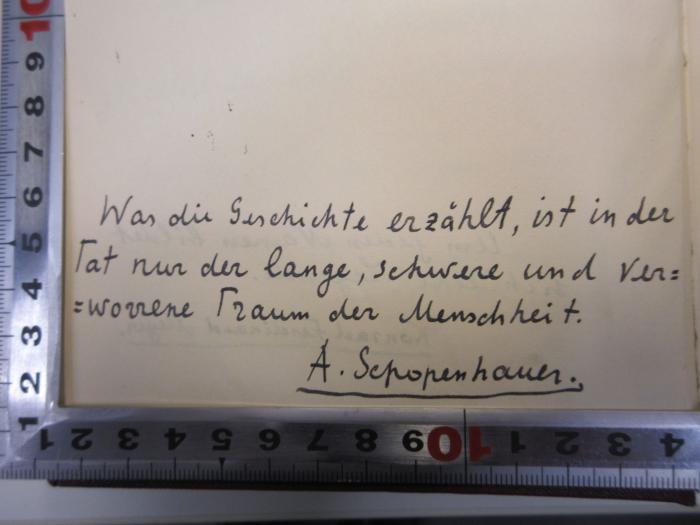 Was die Geschichte erzählt, ist in der
Tat nur der lange, schwere und ver=
=worrene Traum der Menschheit.
A. Schopenhauer.
10
9
8
7
6
5
4
3
2
1
1 2 3 4 5 6 7 8 9 10 1 2 3 4